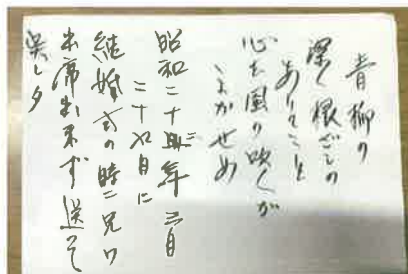 青柳の
深く根ざしの
ありてこと
心を風の吹くが
昭和二十四年三月
二十九日に
結婚式の時ニ兄ハ
出席出来ず送って
呉レタ